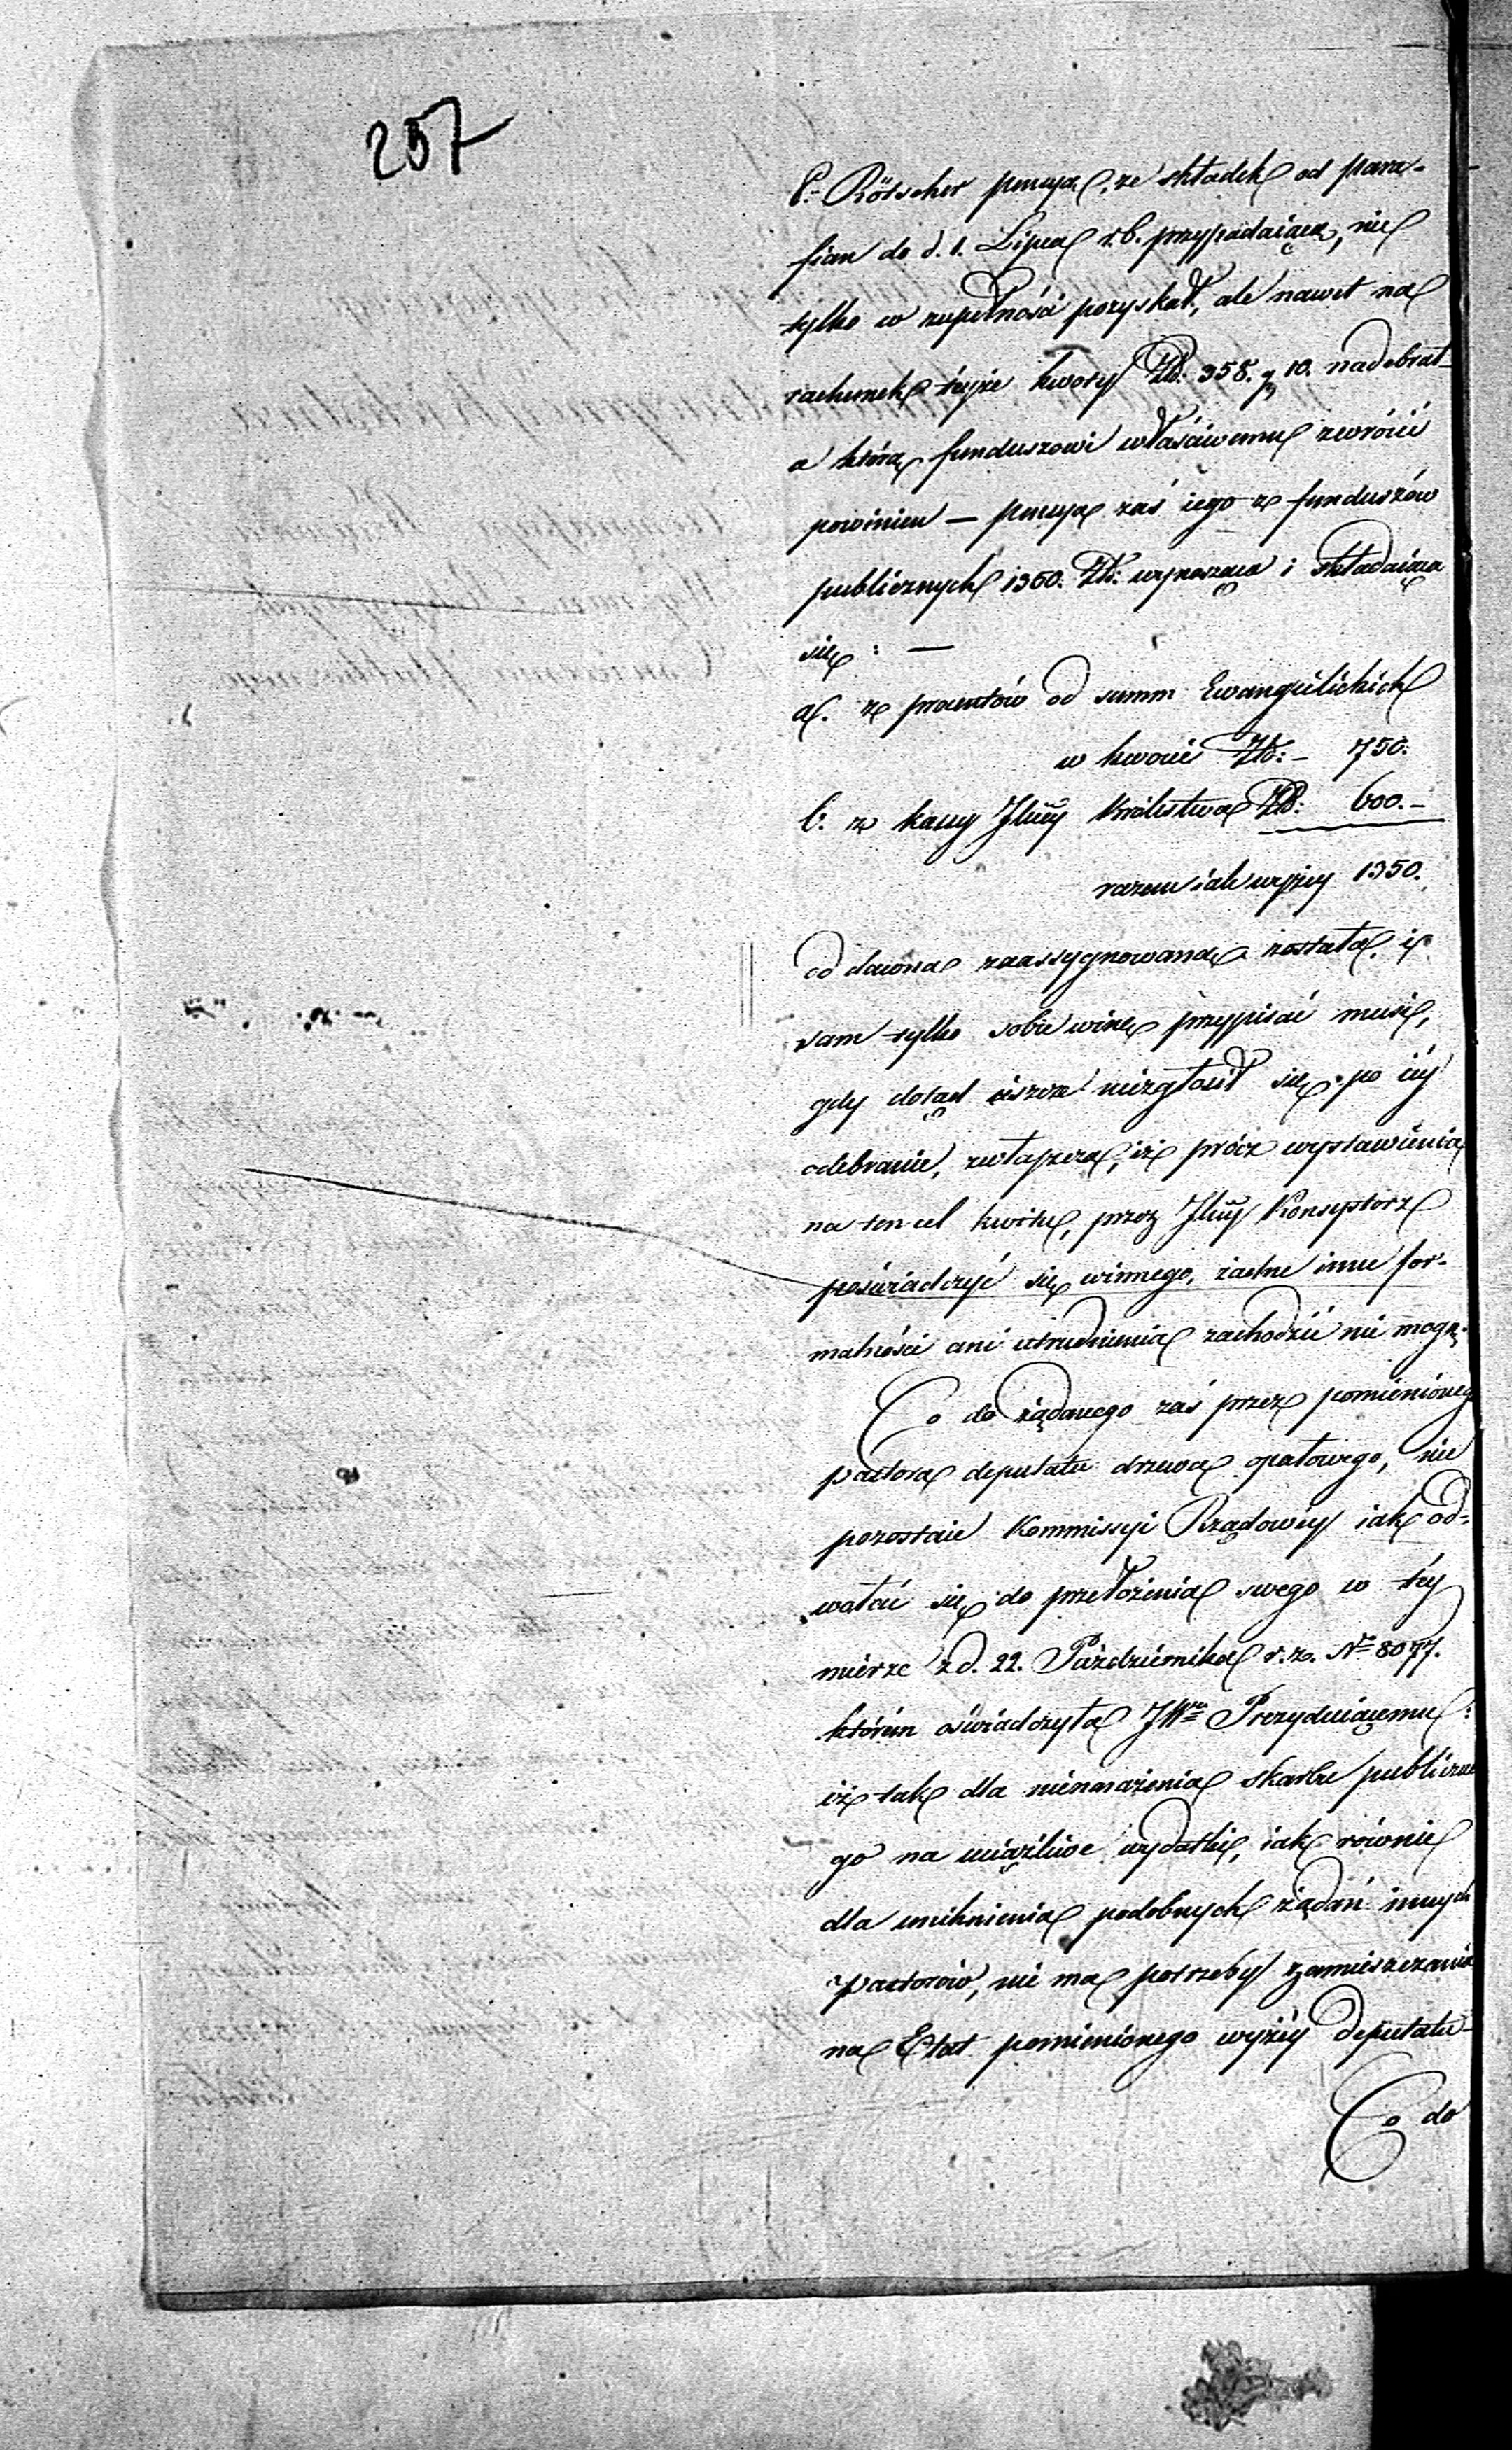 257
P. Rötscher pensyą, ze składek od para-
fian do d. 1. Lipca r.b. przypadaiącą, nie
tylko w zupełności pozyskał, ale nawet na
rachunek teyże kwoty Złł. 358. g 10. nadebrał
a którą funduszowi właściwemu zwrócić
powinien — pensya zaś iego z funduszów
publicznych 1350. Złł. wynosząca i składaiąca
się : —
a. z procentów od summ Ewangelickich
w kwocie Złł: - 750.
b. z kassy Jlney Królestwa Złł: 600.-
razem iak wyżey 1350.
od dawna zaassygnowana została, i
sam tylko sobie winę przypisać musi,
gdy dotąd ieszcze niezgłosił się po iey
odebranie, zwłaszcza, iż prócz wystawienia
na ten cel kwitu, przez Jlny Konsystorz
poświadczyć się winnego, żadne inne for-
malności ani utrudnienia zachodzić nie mogą.
Co do żądanego zaś przez pomienioneg
pastora deputatu drzewa opałowego, nie
pozostaie Kommissyi Rządowey iak od-
wołać się do przełożenia swego w tey
mierze z d. 22. Października r.z. No 8077.
którém oświadczyła JW Prezyduiącemu:
iż tak dla nienarażenia skarbu publiczne
go na uciążliwe wydatki, iak równie
dla uniknienia podobnych żądań innych
Pastorów, nie ma potrzeby zamieszczania
na Etat pomienionego wyżey deputatu-
Co do